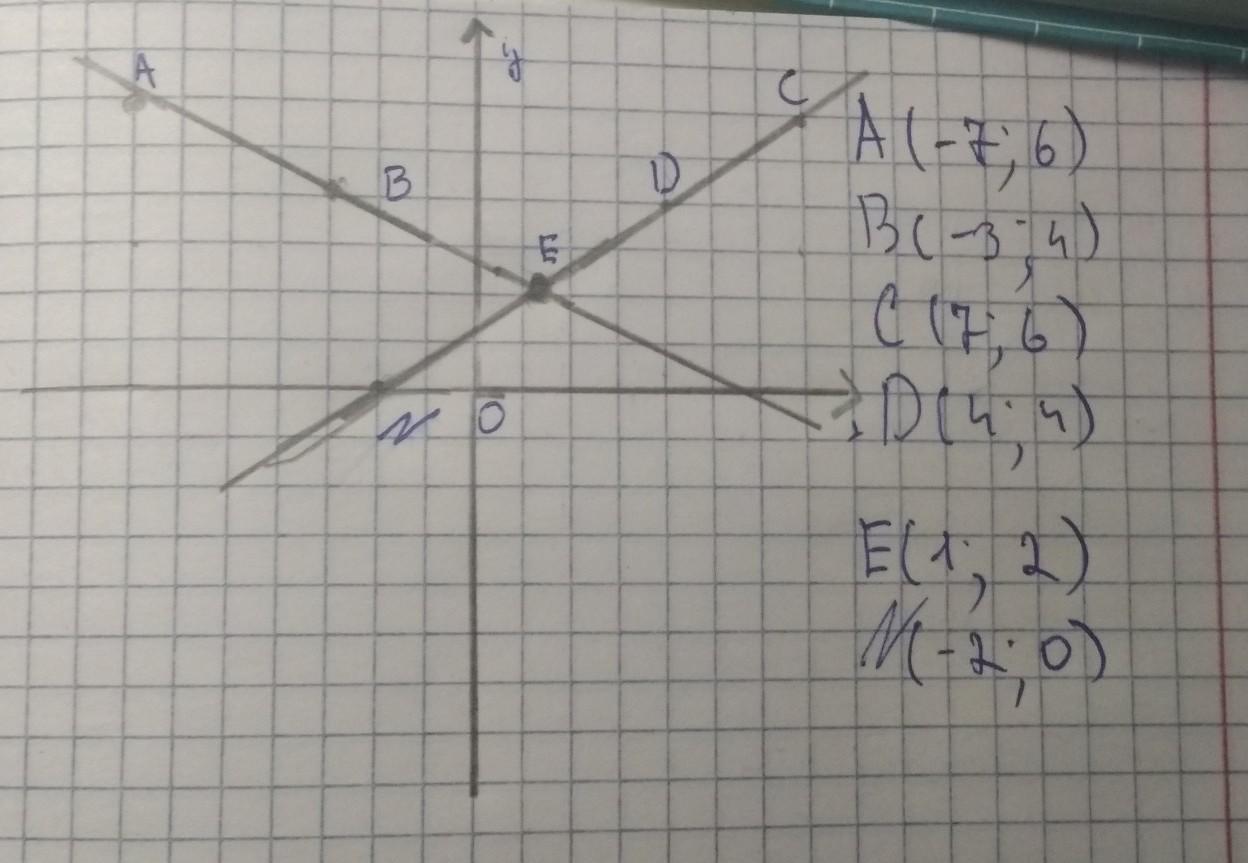 A
y
C
B
D
E
N
O
A(-7; 6)
B(-3; 4)
C(7; 6)
D(4; 4)
E(1; 2)
N(-2; 0)